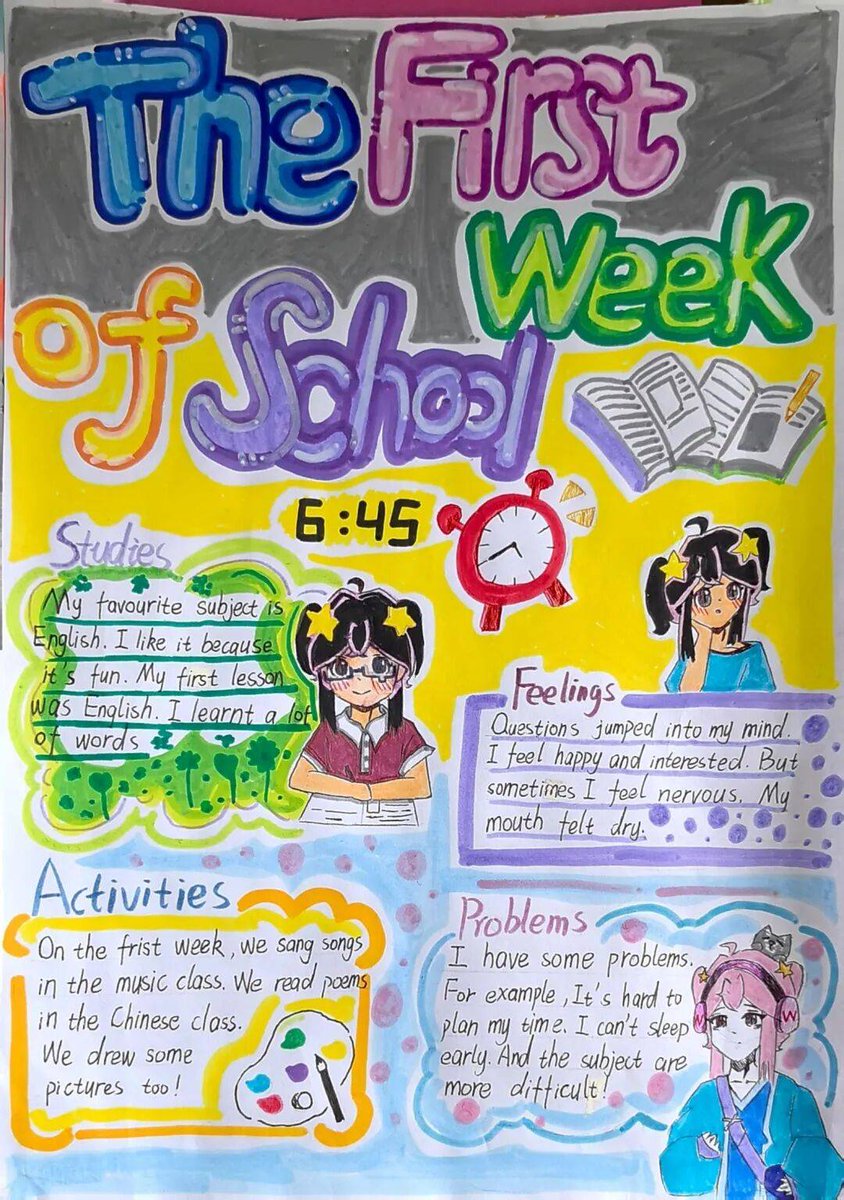 The First
Week
of School
6:45
Studies
My favourite subject is
English. I like it because
it's fun. My first lesson
was English. I learnt a lot
of words
Feelings
Questions jumped into my mind.
I feel happy and interested. But
sometimes I feel nervous. My
mouth felt dry.
Activities
On the frist week, we sang songs
in the music class. We read poems
in the Chinese class.
We drew some
pictures too!
Problems
I have some problems.
For example, It's hard to
plan my time. I can't sleep
early. And the subject are
more difficult!
W